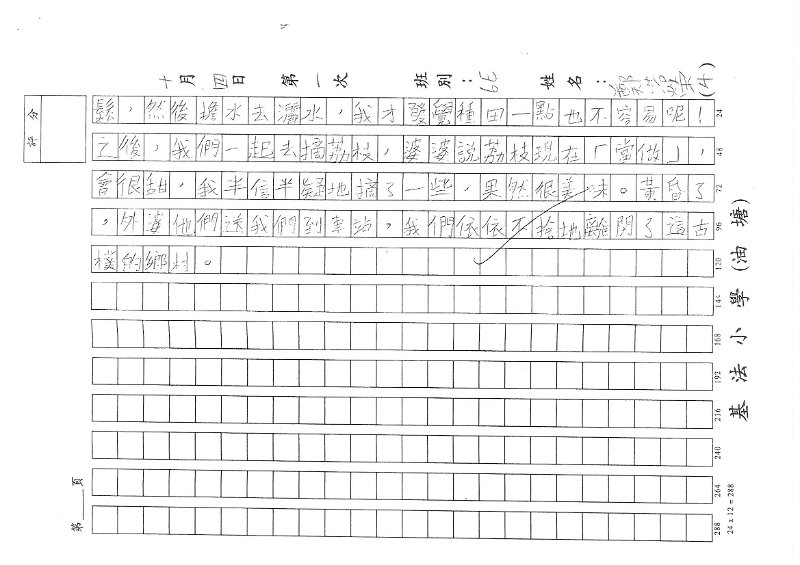 十月四日 第一次 班別：6E 姓名： (4)
評分
鬆，然後擔水去灑水，我才發覺種田一點也不容易呢！ 24
之後，我們一起去摘荔枝，婆婆說荔枝現在「當做」， 48
會很甜，我半信半疑地摘了一些，果然很美味。黃昏了 72
，外婆他們送我們到車站，我們依依不捨地離開了這古 96
樸的鄉村。 120
144
168
192
216
240
264
288
第 頁
24 x 12 = 288
基法小學(油塘)